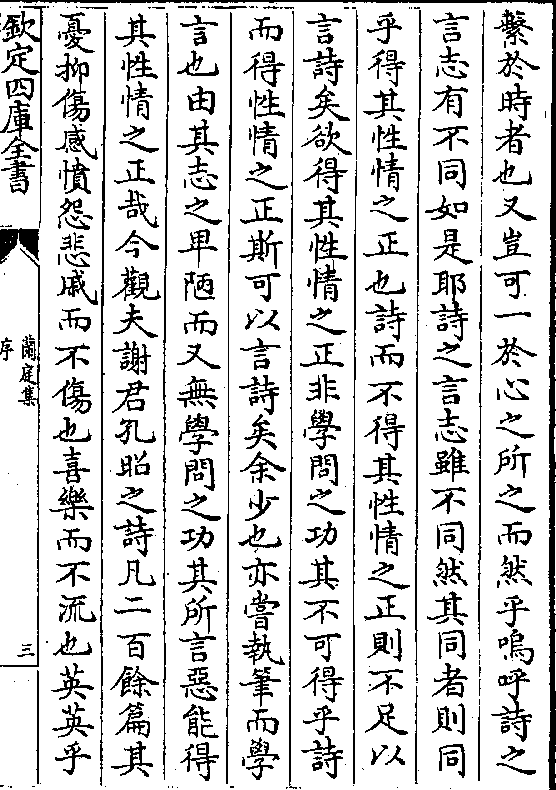 繫於時者也又豈可一於心之所之而然乎嗚呼詩之
言志有不同如是耶詩之言志雖不同然其同者則同
乎得其性情之正也詩而不得其性情之正則不足以
言詩矣欲得其性情之正非學問之功其不可得乎詩
而得性情之正斯可以言詩矣余少也亦嘗執筆而學
言也由其志之卑陋而又無學問之功其所言惡能得
其性情之正哉今觀夫謝君孔昭之詩凡二百餘篇其
憂抑傷感憤怨悲戚而不傷也喜樂而不流也英英乎
欽定四庫全書
蘭庭集
序
三